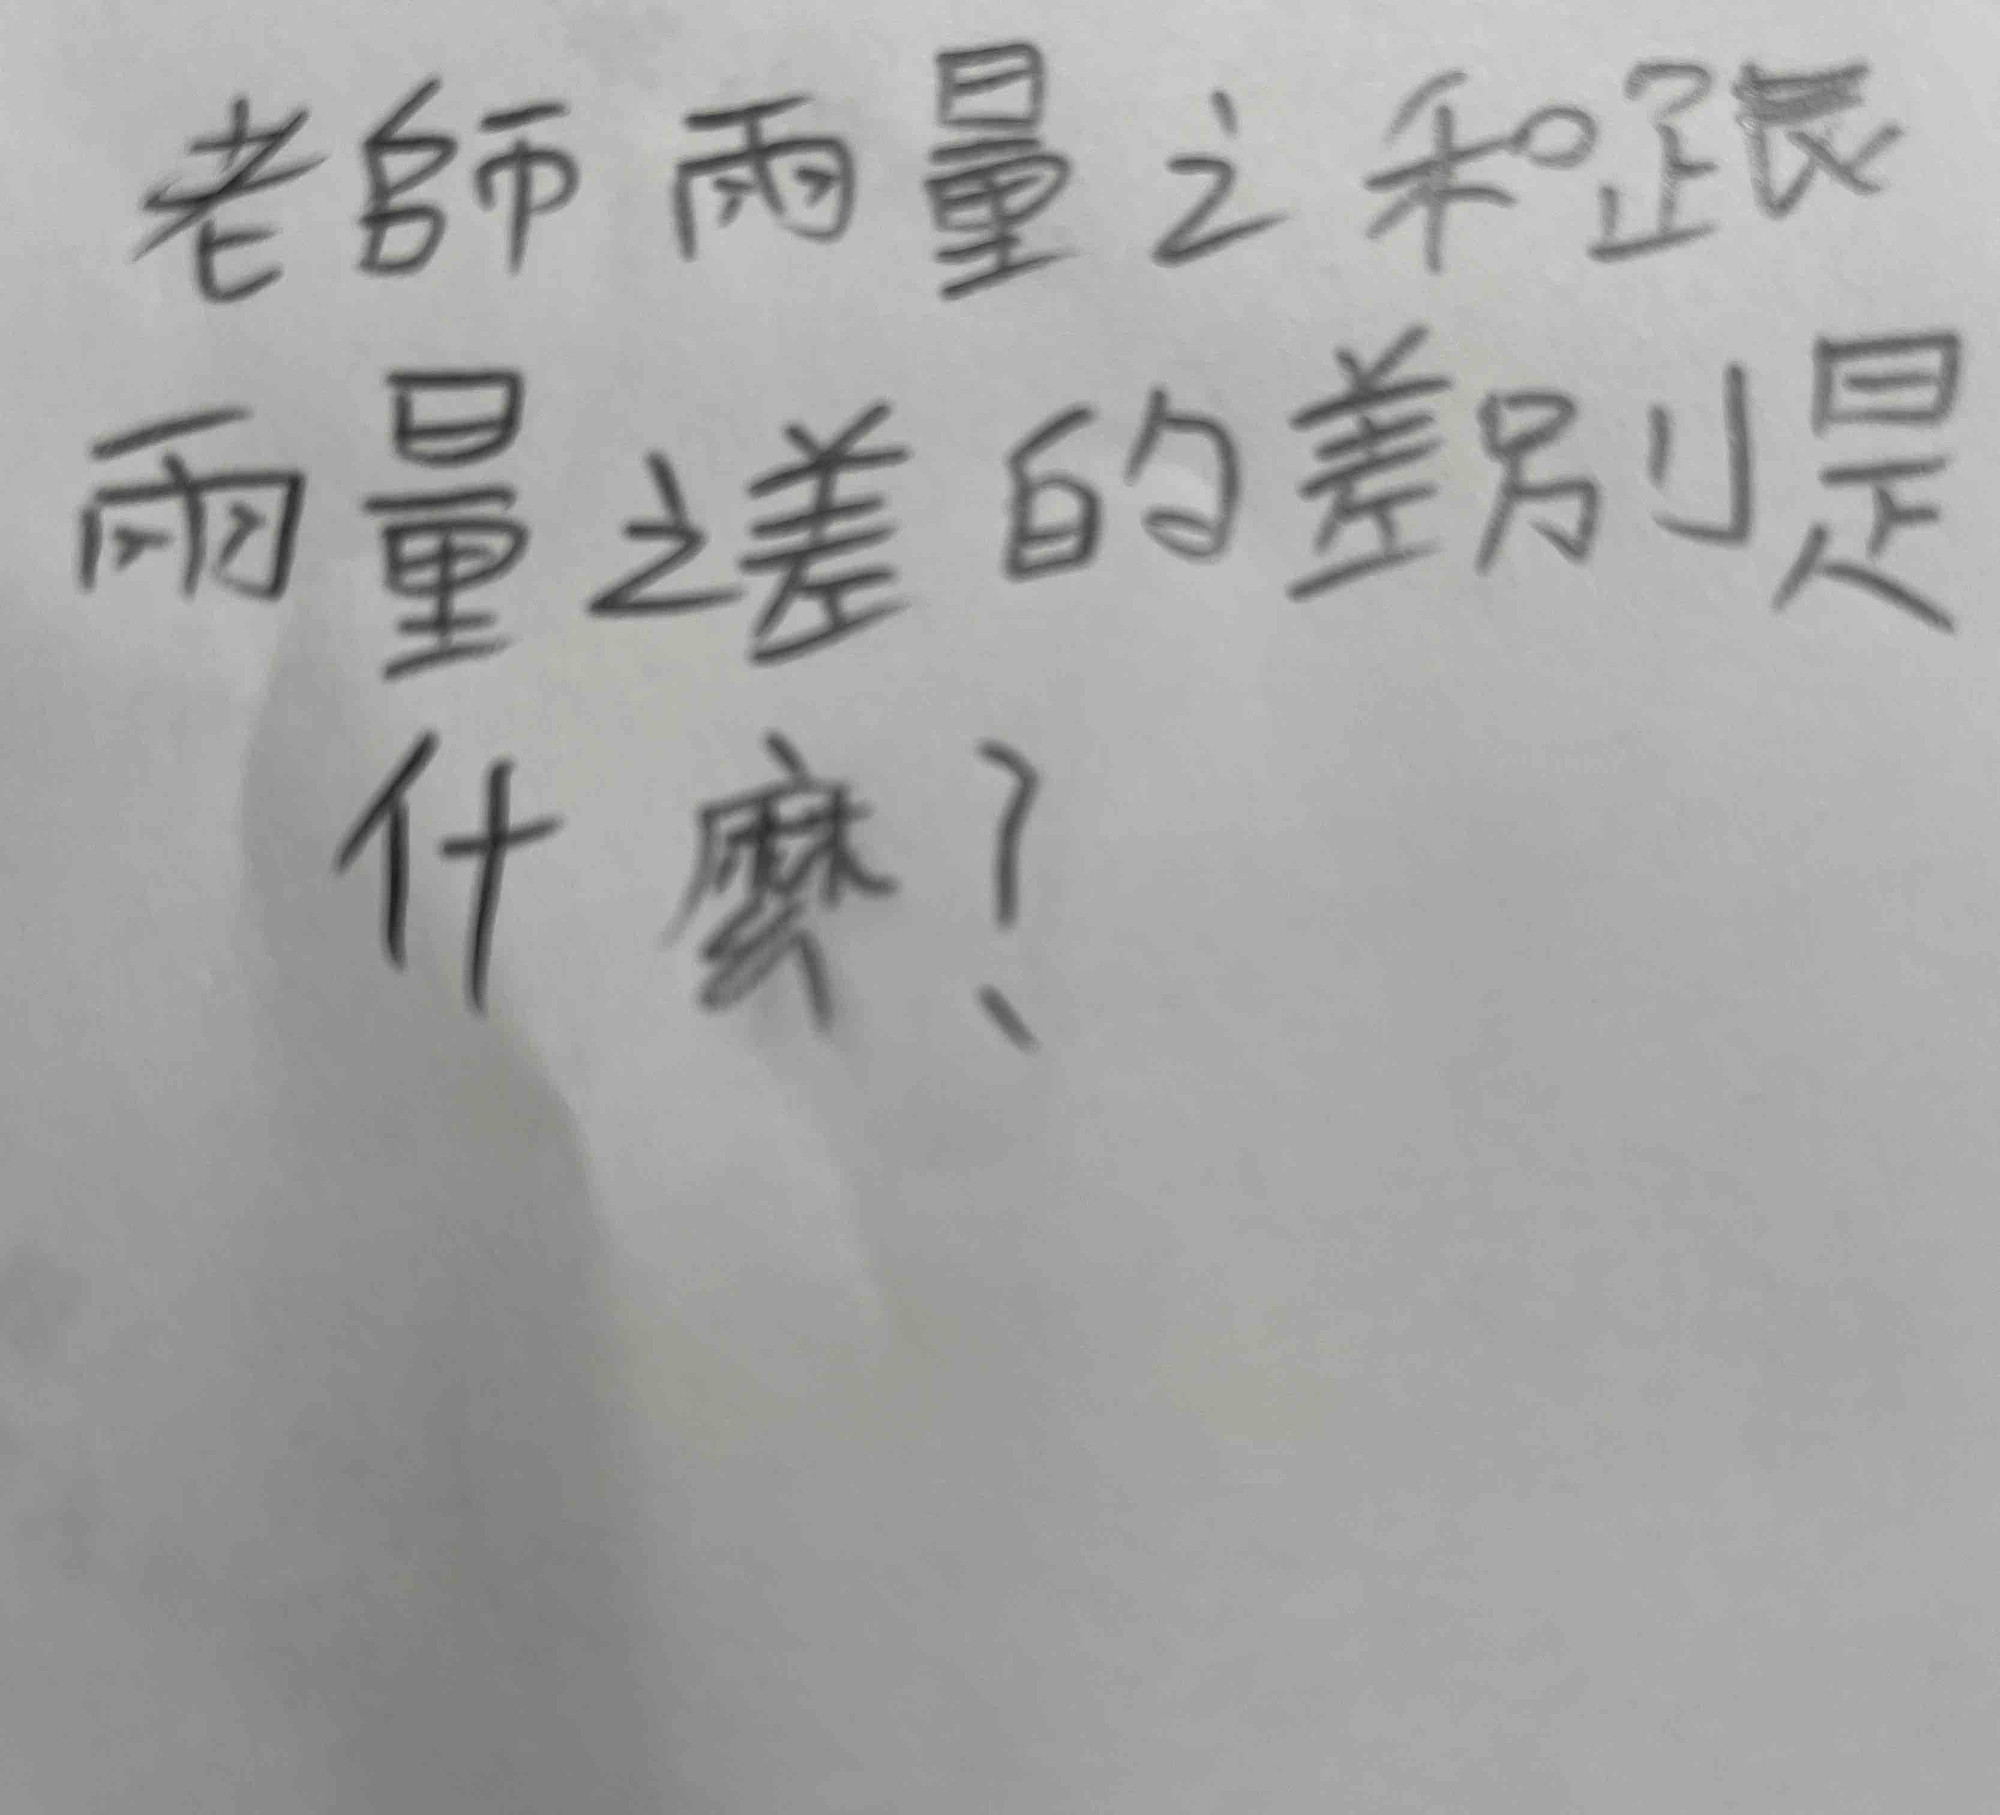 老師兩量之和跟
兩量之差的差別是
什麼?